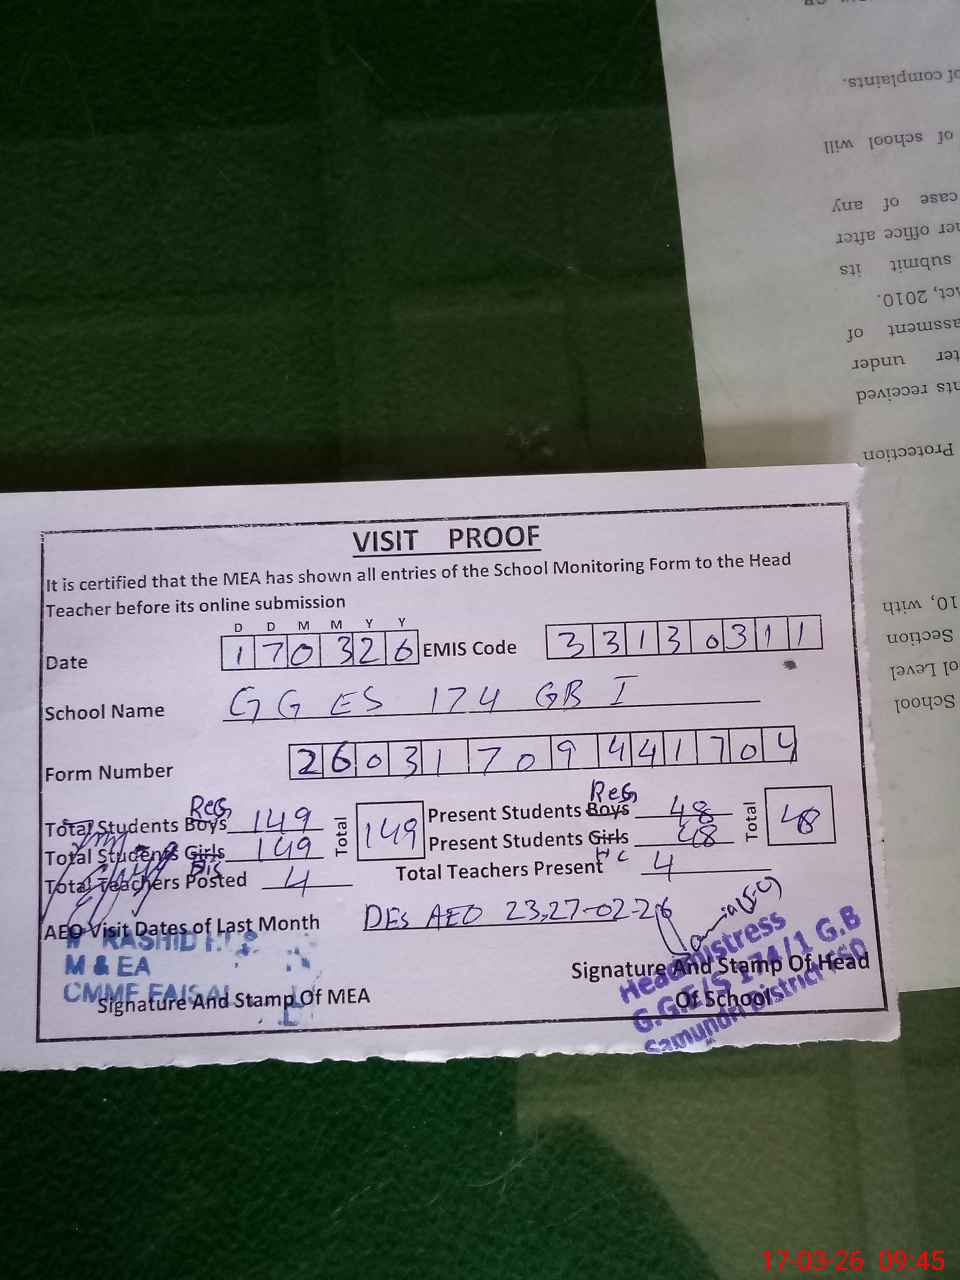 of complaints.
of school will
case of any
office after
submit its
Act, 2010.
of
under
received
Protection
10, with
Section
Level
School
VISIT PROOF
It is certified that the MEA has shown all entries of the School Monitoring Form to the Head
Teacher before its online submission
D D M M Y Y
Date 170326 EMIS Code 33130311
School Name GGES 174 GB I
Form Number 26031709441704
Total Students Boys Reg 149 Total 149 Present Students Boys Reg 48 Total 48
Total Students Girls 149 Present Students Girls 48
Total Teachers Posted 4 Total Teachers Present 4
AEO Visit Dates of Last Month DEs AEO 23,27-02-26
RASHID
M & EA
CMMF FAISAL
Signature And Stamp Of MEA
Signature And Stamp Of Head
Of School
Headmistress
G.G.E/S 174/1 G.B
Samundri District FSD
17-03-26 09:45